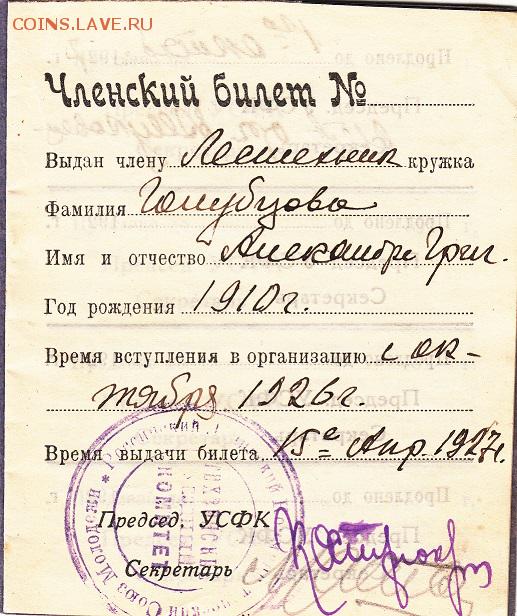 COINS.LAVE.RU
Членский билет №
Выдан члену кружка
Фамилия Голубцова
Имя и отчество Александра Григ.
Год рождения 1910 г.
Время вступления в организацию с ок-
тября 1926 г.
Время выдачи билета 15го Апр. 1927 г.
Председ. УСФК
Секретарь
Союз Молодежи
КОМИТЕТ